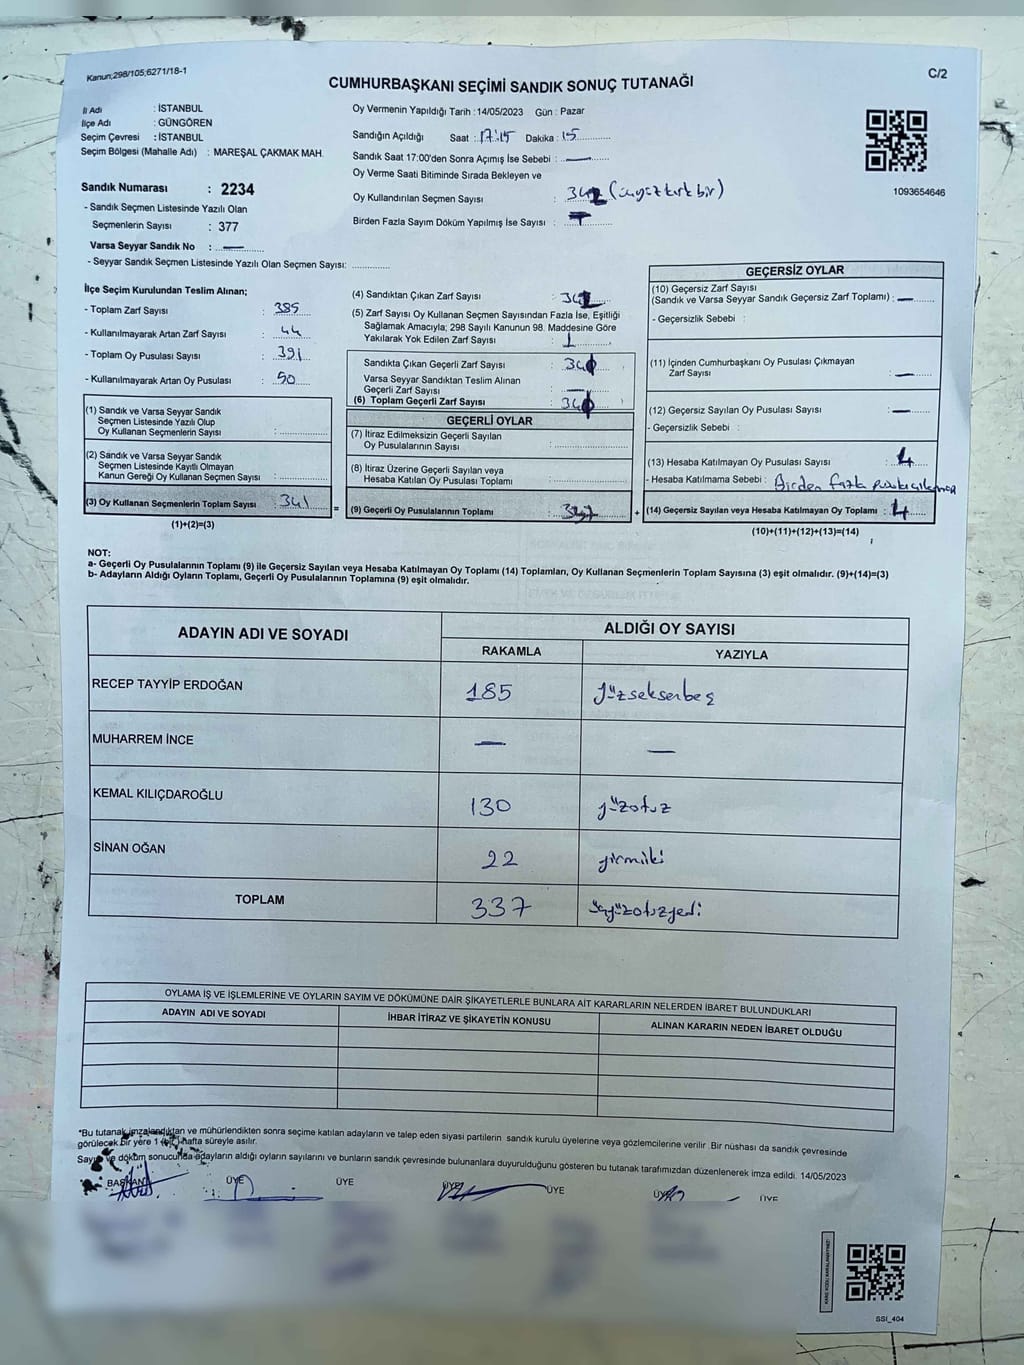 Kanun;298/105;6271/18-1
C/2
CUMHURBAŞKANI SEÇİMİ SANDIK SONUÇ TUTANAĞI
İl Adı : İSTANBUL
İlçe Adı : GÜNGÖREN
Seçim Çevresi : İSTANBUL
Seçim Bölgesi (Mahalle Adı) : MAREŞAL ÇAKMAK MAH.
Sandık Numarası : 2234
- Sandık Seçmen Listesinde Yazılı Olan
Seçmenlerin Sayısı : 377
Varsa Seyyar Sandık No : —
- Seyyar Sandık Seçmen Listesinde Yazılı Olan Seçmen Sayısı: ..............
Oy Vermenin Yapıldığı Tarih : 14/05/2023 Gün : Pazar
Sandığın Açıldığı Saat : 17:15 Dakika : 15
Sandık Saat 17:00'den Sonra Açımış İse Sebebi : —
Oy Verme Saati Bitiminde Sırada Bekleyen ve
Oy Kullandırılan Seçmen Sayısı : (üçyüzkırkbir)
Birden Fazla Sayım Döküm Yapılmış İse Sayısı :
1093654646
İlçe Seçim Kurulundan Teslim Alınan;
- Toplam Zarf Sayısı : 385
- Kullanılmayarak Artan Zarf Sayısı : 44
- Toplam Oy Pusulası Sayısı : 391
- Kullanılmayarak Artan Oy Pusulası : 50
(1) Sandık ve Varsa Seyyar Sandık
Seçmen Listesinde Yazılı Olup
Oy Kullanan Seçmenlerin Sayısı :
(2) Sandık ve Varsa Seyyar Sandık
Seçmen Listesinde Kayıtlı Olmayan
Kanun Gereği Oy Kullanan Seçmen Sayısı :
(3) Oy Kullanan Seçmenlerin Toplam Sayısı : 341
(1)+(2)=(3)
=
(4) Sandıktan Çıkan Zarf Sayısı :
(5) Zarf Sayısı Oy Kullanan Seçmen Sayısından Fazla İse, Eşitliği
Sağlamak Amacıyla; 298 Sayılı Kanunun 98. Maddesine Göre
Yakılarak Yok Edilen Zarf Sayısı : 1
Sandıkta Çıkan Geçerli Zarf Sayısı :
Varsa Seyyar Sandıktan Teslim Alınan
Geçerli Zarf Sayısı : —
(6) Toplam Geçerli Zarf Sayısı :
GEÇERLİ OYLAR
(7) İtiraz Edilmeksizin Geçerli Sayılan
Oy Pusulalarının Sayısı :
(8) İtiraz Üzerine Geçerli Sayılan veya
Hesaba Katılan Oy Pusulası Toplamı :
(9) Geçerli Oy Pusulalarının Toplamı :
+
GEÇERSİZ OYLAR
(10) Geçersiz Zarf Sayısı
(Sandık ve Varsa Seyyar Sandık Geçersiz Zarf Toplamı) : —
- Geçersizlik Sebebi :
(11) İçinden Cumhurbaşkanı Oy Pusulası Çıkmayan
Zarf Sayısı : —
(12) Geçersiz Sayılan Oy Pusulası Sayısı : —
- Geçersizlik Sebebi :
(13) Hesaba Katılmayan Oy Pusulası Sayısı : 4
- Hesaba Katılmama Sebebi : Birden fazla
(14) Geçersiz Sayılan veya Hesaba Katılmayan Oy Toplamı : 4
(10)+(11)+(12)+(13)=(14)
NOT:
a- Geçerli Oy Pusulalarının Toplamı (9) ile Geçersiz Sayılan veya Hesaba Katılmayan Oy Toplamı (14) Toplamları, Oy Kullanan Seçmenlerin Toplam Sayısına (3) eşit olmalıdır. (9)+(14)=(3)
b- Adayların Aldığı Oyların Toplamı, Geçerli Oy Pusulalarının Toplamına (9) eşit olmalıdır.
ADAYIN ADI VE SOYADI ALDIĞI OY SAYISI
RAKAMLA YAZIYLA
RECEP TAYYİP ERDOĞAN 185 yüzseksenbeş
MUHARREM İNCE — —
KEMAL KILIÇDAROĞLU 130 yüzotuz
SİNAN OĞAN 22 yirmiiki
TOPLAM 337 üçyüzotuzyedi
OYLAMA İŞ VE İŞLEMLERİNE VE OYLARIN SAYIM VE DÖKÜMÜNE DAİR ŞİKAYETLERLE BUNLARA AİT KARARLARIN NELERDEN İBARET BULUNDUKLARI
ADAYIN ADI VE SOYADI İHBAR İTİRAZ VE ŞİKAYETİN KONUSU ALINAN KARARIN NEDEN İBARET OLDUĞU
*Bu tutanak imzalandıktan ve mühürlendikten sonra seçime katılan adayların ve talep eden siyasi partilerin sandık kurulu üyelerine veya gözlemcilerine verilir. Bir nüshası da sandık çevresinde
görülecek bir yere 1 (bir) hafta süreyle asılır.
Sayım ve döküm sonucunda adayların aldığı oyların sayılarını ve bunların sandık çevresinde bulunanlara duyurulduğunu gösteren bu tutanak tarafımızdan düzenlenerek imza edildi. 14/05/2023
BAŞKAN ÜYE ÜYE ÜYE ÜYE ÜYE ÜYE
SSI_404